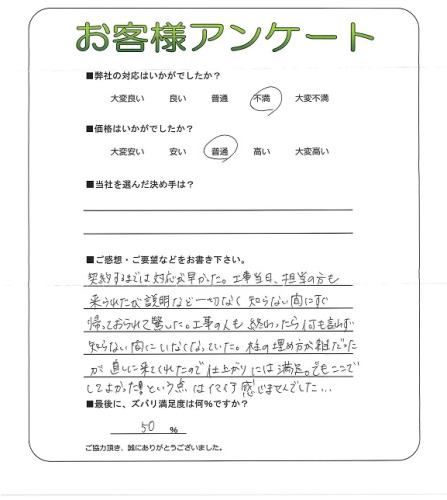 お客様アンケート
■弊社の対応はいかがでしたか？
大変良い　良い　普通　不満　大変不満
■価格はいかがでしたか？
大変安い　安い　普通　高い　大変高い
■当社を選んだ決め手は？
■ご感想・ご要望などをお書き下さい。
契約するまでは対応が早かった。工事当日、担当の方も
来られたが説明など一切なく知らない間にすぐ
帰っておられて驚いた。工事の人も終わったら何も言わず
知らない間にいなくなっていた。柱の埋め方が雑だった
が直しに来てくれたので仕上がりには満足。でもここで
してよかった!という点は感じませんでした...
■最後に、ズバリ満足度は何%ですか？
50 %
ご協力頂き、誠にありがとうございました。